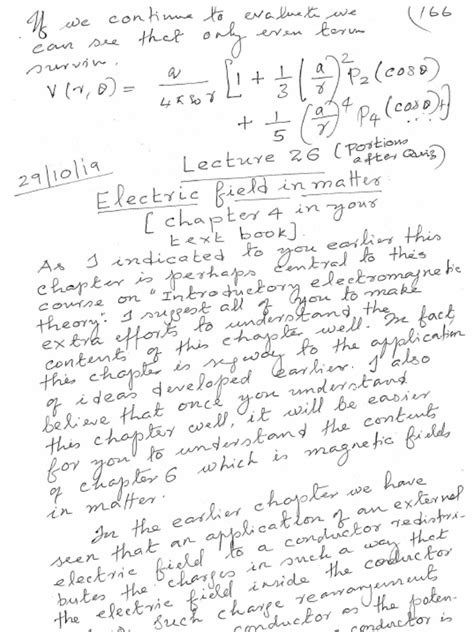 If we continue to evaluate we (166
can see that only even term
survive.
V(r,θ) = a/4πε0r [1 + 1/3 (a/r)^2 P2(cosθ)
+ 1/5 (a/r)^4 P4(cosθ)...]
29/10/19 Lecture 26 (Portions after Quiz)
Electric field in matter
[chapter 4 in your
text book].
As I indicated to you earlier this
chapter is perhaps central to this
course on "Introductory electromagnetic
theory". I suggest all of you to make
extra efforts to understand the
contents of this chapter well. In fact
this chapter is segway to the application
of ideas developed earlier. I also
believe that once you understand
this chapter well, it will be easier
for you to understand the contents
of chapter 6 which is magnetic fields
in matter.
In the earlier chapter we have
seen that an application of an external
electric field to a conductor redistri-
butes the charges in such a way that
the electric field inside the conductor
Such charge rearrangements
conductor as the poten-
conductor is